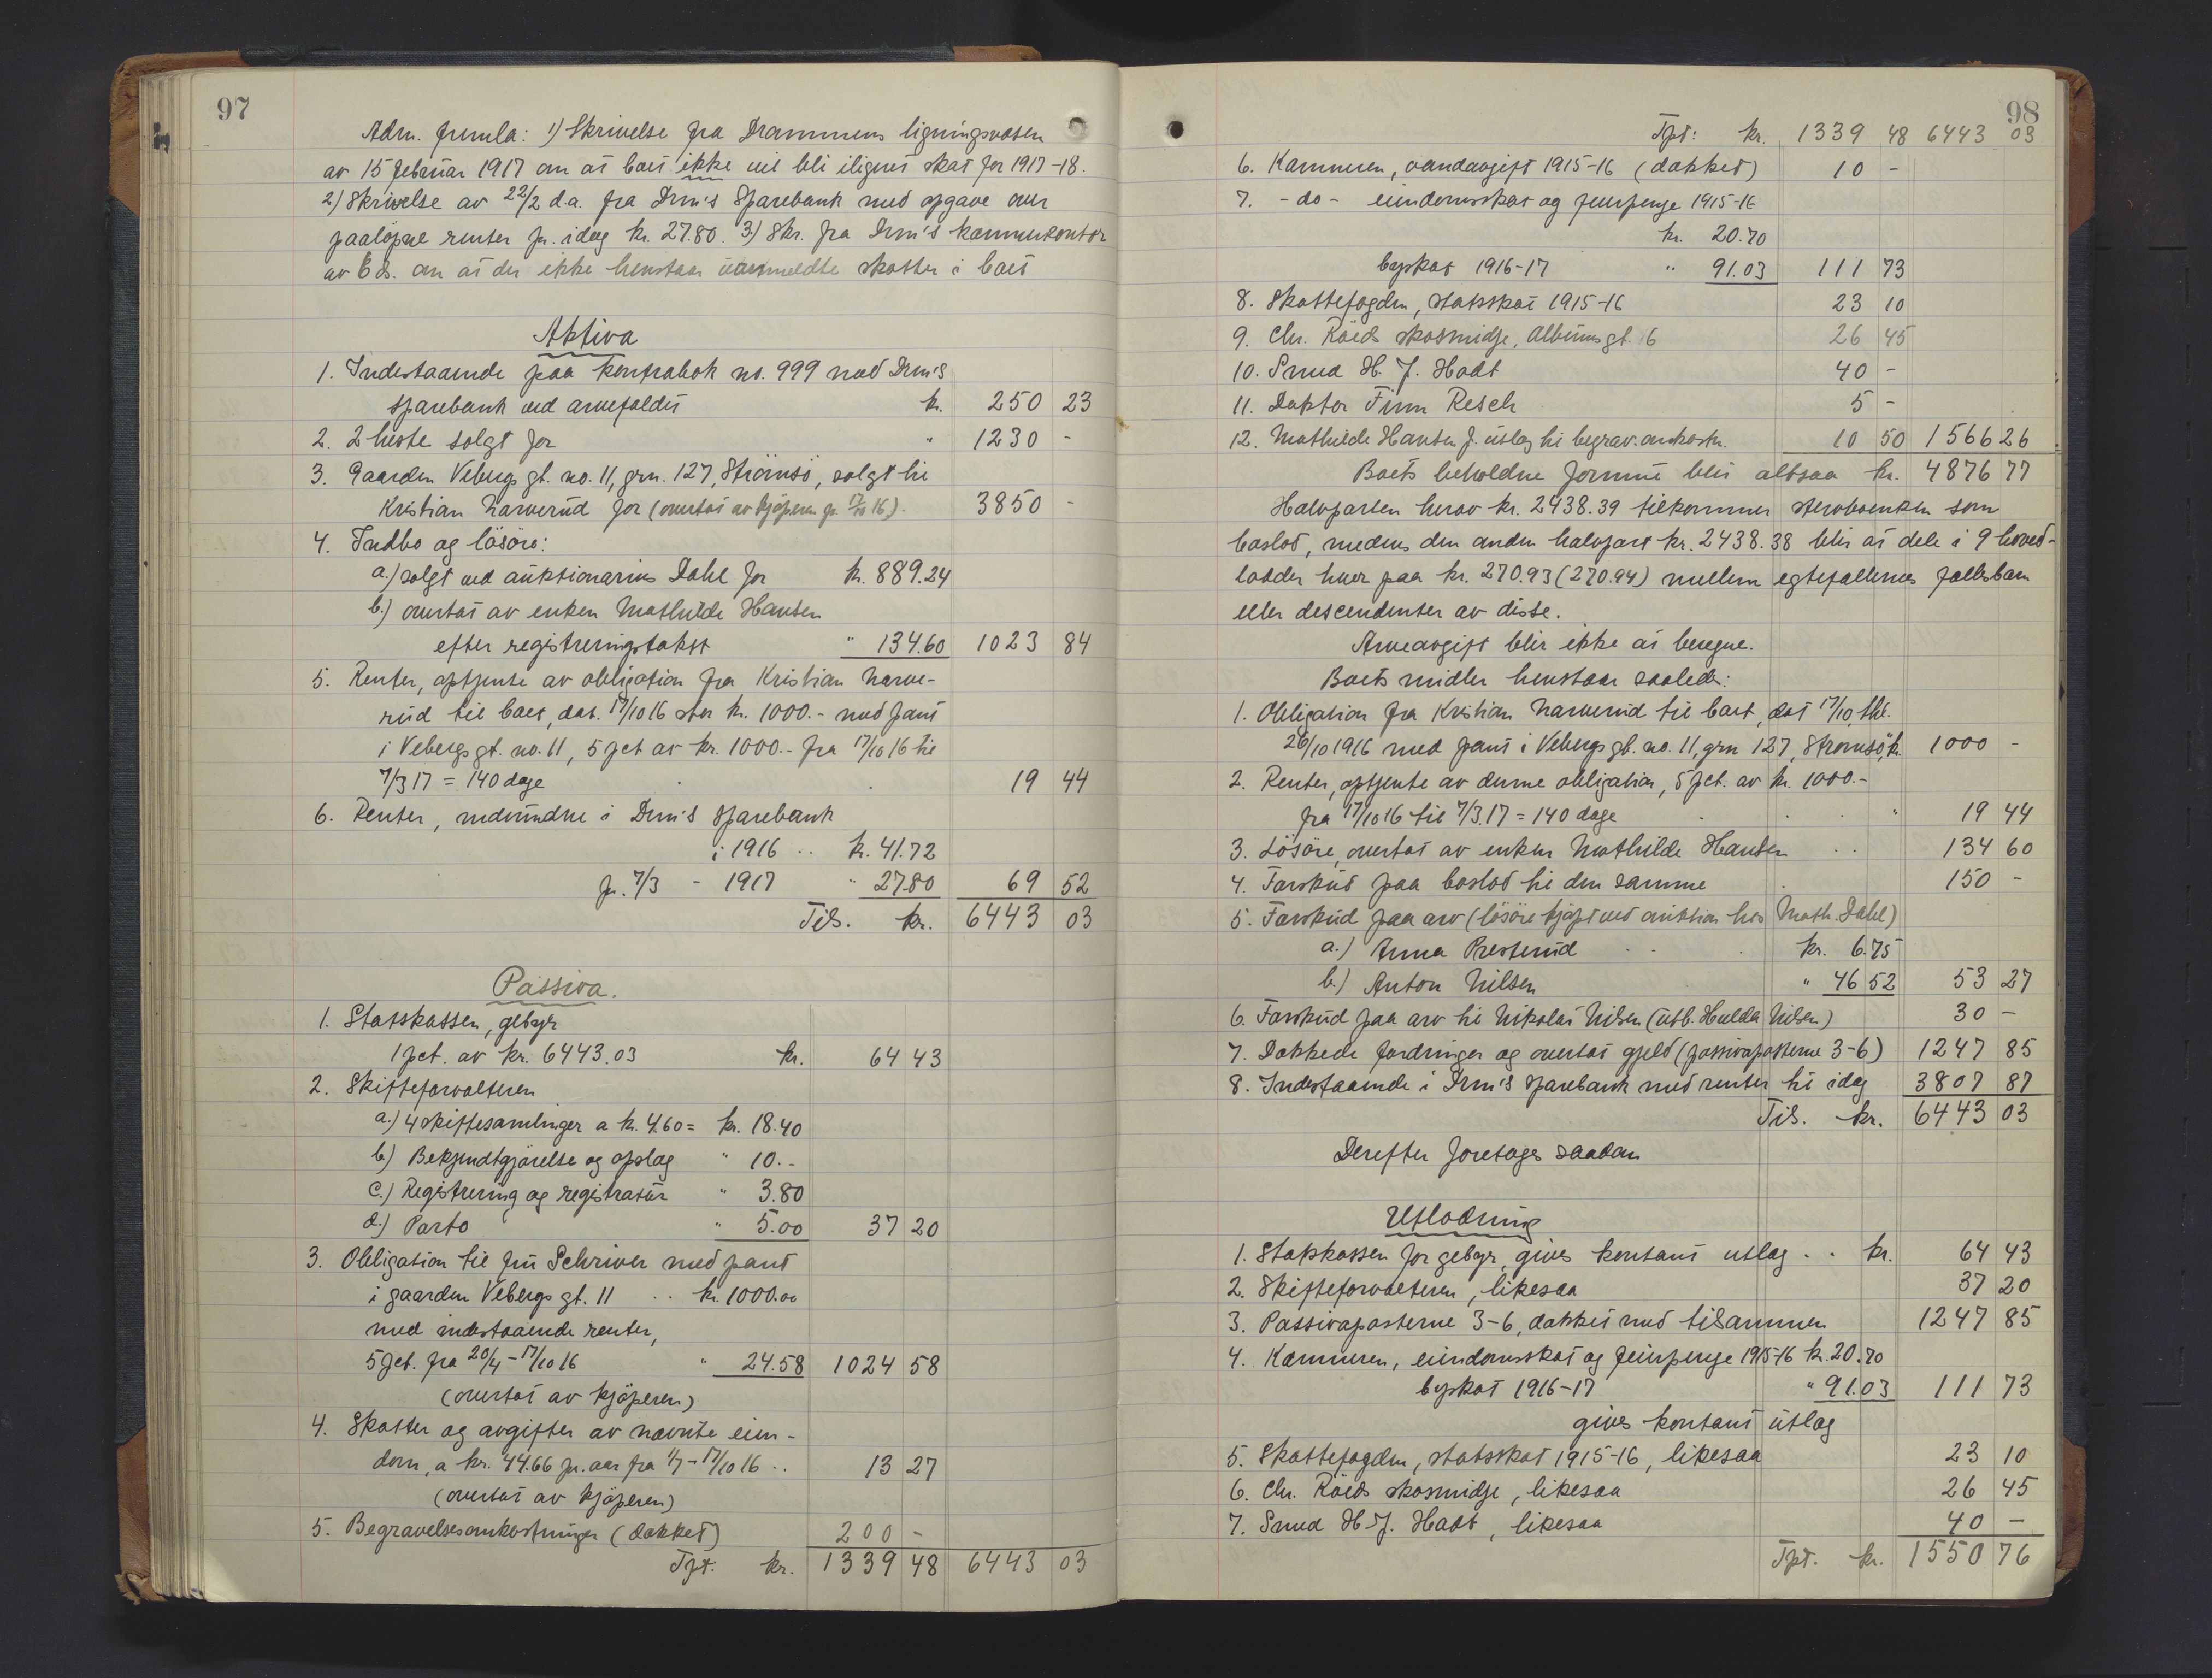 97
Adm. fremla: 1) Skrivelse fra Drammens ligningsvæsen
av 15 februar 1917 om at boet ikke vil bli ilignet skat for 1917-18.
2) Skrivelse av 22/2 d.a. fra Drm's Sparebank med opgave over
paaløpne renter pr. idag kr. 27.80. 3) Skr. fra Drm's kæmnerkontor
av 6 ds. om at der ikke henstaar uanmeldte skatter i boet
Aktiva
1. Indestaaende paa kontrabok no. 999 med Drm's
sparebank ved arvefaldet kr. 250 23
2. 2 heste solgt for " 1230 -
3. Gaarden Vebergs gt. no. 11, grn. 127, Strømsö, solgt til
Kristian Narverud for (overtat av kjöperen pr. 17/10 16). 3850 -
4. Indbo og lösöre:
a.) solgt ved auktionarius Dahl for kr. 889.24
b.) overtat av enken Mathilde Hansen
efter registreringstakst " 134.60 1023 84
5. Renter, optjente av obligation fra Kristian Narve-
rud til boet, dat. 17/10 16 stor kr. 1000.- med pant
i Vebergs gt. no. 11, 5 pct av kr. 1000.- fra 17/10 16 til
7/3 17 = 140 dage 19 44
6. Renter, indvundne i Drm's Sparebank
i 1916 .. kr. 41.72
pr. 7/3 - 1917 " 27.80 69 52
Tils. kr. 6443 03
Passiva.
1. Statskassen, gebyr
1 pct. av kr. 6443.03 kr. 64 43
2. Skifteforvalteren
a.) 4 skiftesamlinger a kr. 4.60 = kr. 18.40
b.) Bekjendtgjörelse og opslag " 10.-
c.) Registrering og registratur " 3.80
d.) Porto " 5.00 37 20
3. Obligation til fru Schriver med pant
i gaarden Vebergs gt. 11 .. kr. 1000.00
med indestaaende renter,
5 pct. fra 20/4 - 17/10 16 " 24.58 1024 58
(overtat av kjöperen)
4. Skatter og avgifter av nævnte eien-
dom, a kr. 44.66 pr. aar fra 1/7 - 17/10 16 .. 13 27
(overtat av kjöperen)
5. Begravelsesomkostninger (dækket) 200 -
Tpt. kr. 1339 48 6443 03
98
Tpt: kr. 1339 48 6443 03
6. Kæmneren, vandavgift 1915-16 (dækket) 10 -
7. - do - eiendomsskat og feierpenge 1915-16
kr. 20.70
byskat 1916-17 " 91.03 111 73
8. Skattefogden, statsskat 1915-16 23 10
9. Chr. Röeds skosmidje, Albumsgt. 16 26 45
10. Smed H. J. Hadt 40 -
11. Doktor Finn Resch 5 -
12. Mathilde Hansen f. utlæg til begrav. omkostn. 10 50 1566 26
Boets beholdne formue blir altsaa kr. 4876 77
Halvparten herav kr. 2438.39 tilkommer sterbsenken som
boslod, medens den anden halvpart kr. 2438.38 blir at dele i 9 hoved-
lodder hver paa kr. 270.93 (270.94) mellem egtefællernes fællesbarn
eller descendenter av disse.
Arveavgift blir ikke at beregne.
Boets midler henstaar saaledes:
1. Obligation fra Kristian Narverud til boet, dat 17/10, thl.
26/10 1916 med pant i Vebergs gt. no. 11, grn 127, Strømsö, kr. 1000 -
2. Renter, optjente av denne obligation, 5 pct. av kr. 1000.-
fra 17/10 16 til 7/3.17 = 140 dage " 19 44
3. Lösöre, overtat av enken Mathilde Hansen .. 134 60
4. Forskud paa boslod til den samme 150 -
5. Forskud paa arv (lösöre kjöpt ved auktion hos Math. Dahl)
a.) Anna Presterud kr. 6.75
b.) Anton Nilsen " 46 52 53 27
6. Forskud paa arv til Nikolai Nilsen (utb. Hulda Nilsen) 30 -
7. Dækkede fordringer og overtat gjeld (passivaposterne 3-6) 1247 85
8. Indestaaende i Drm's sparebank med renter til idag 3807 87
Tils. kr. 6443 03
Derefter foretages saadan
Utlodning
1. Statskassen for gebyr, gives kontant utlæg .. kr. 64 43
2. Skifteforvalteren, likesaa 37 20
3. Passivaposterne 3-6, dækket med tilsammen 1247 85
4. Kæmneren, eiendomsskat og feierpenge 1915-16 kr. 20.70
byskat 1916-17 " 91.03 111 73
gives kontant utlæg
5. Skattefogden, statsskat 1915-16, likesaa 23 10
6. Chr. Röeds skosmidje, likesaa 26 45
7. Smed H. J. Hadt, likesaa 40 -
Tpt. kr. 1550 76